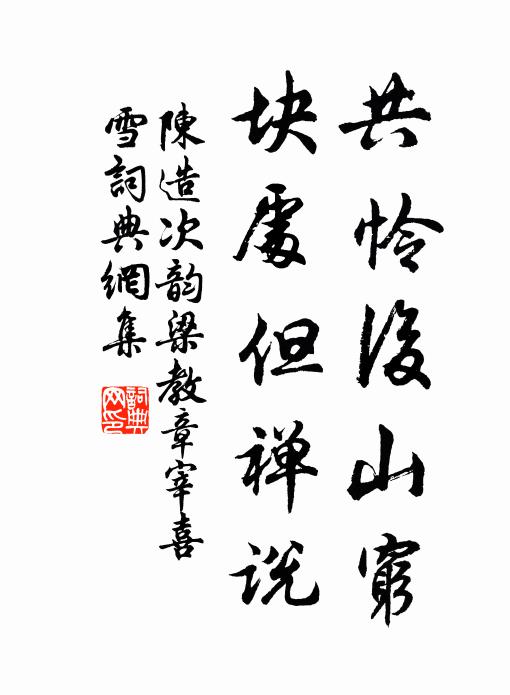 共怜后山穷
块处但禅说
陳造次韵梁教章宰喜
雪詞典網集
詞典
网印